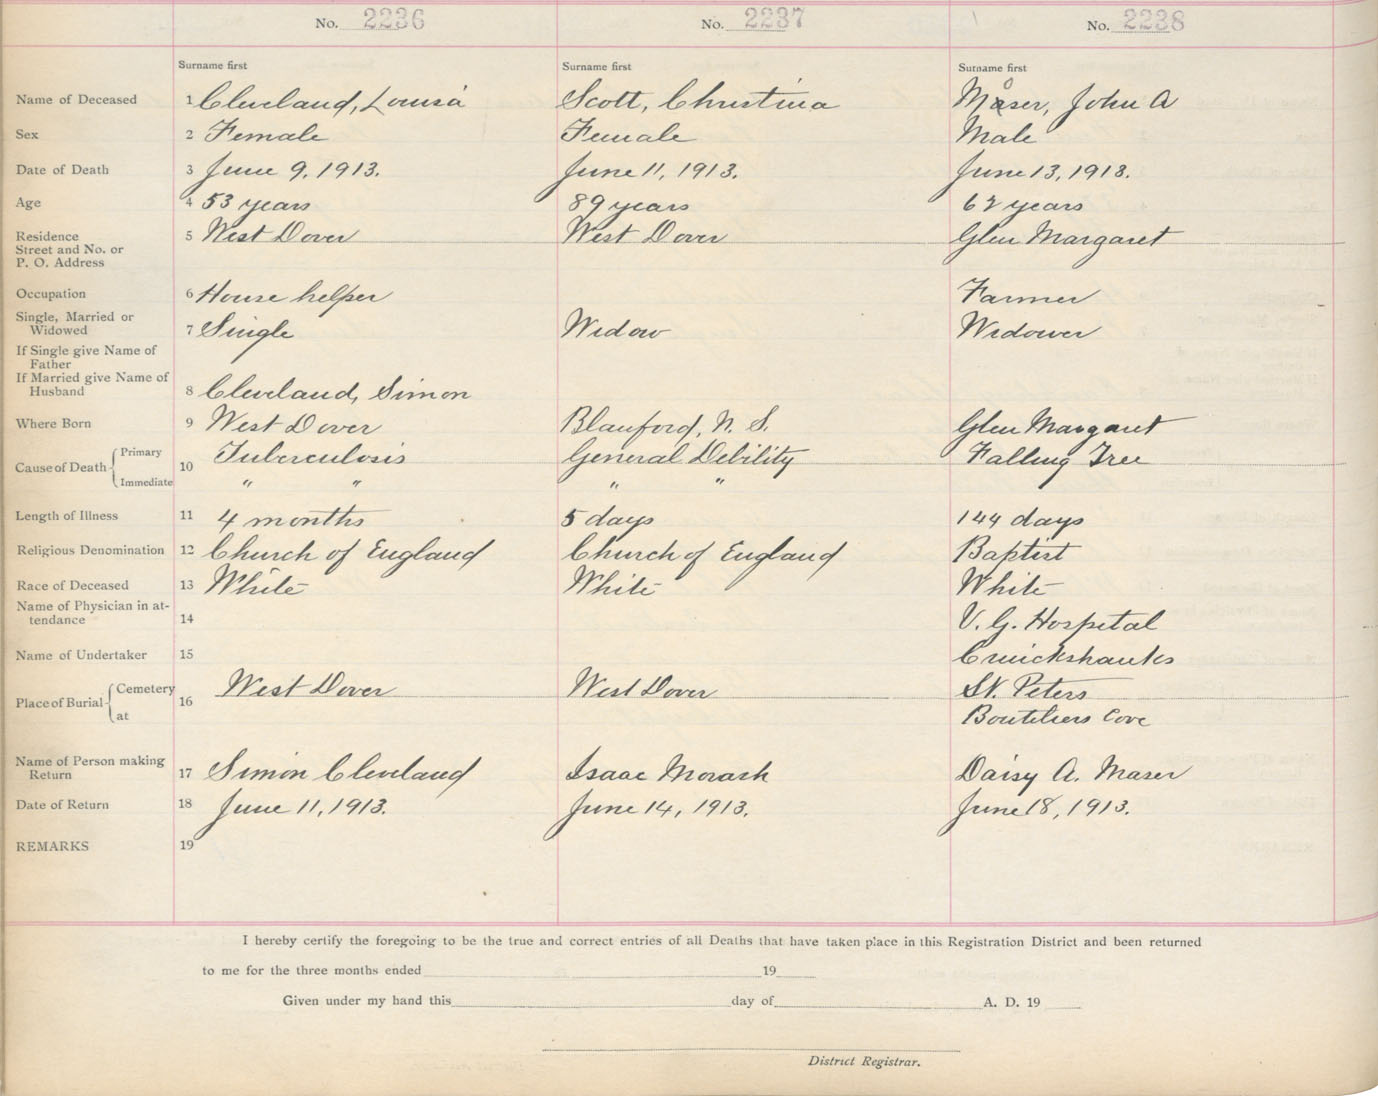 No. 2236 No. 2237 No. 2238
Surname first Surname first Surname first
Name of Deceased 1 Cleveland, Louisa Scott, Christina Maser, John A
Sex 2 Female Female Male
Date of Death 3 June 9, 1913. June 11, 1913. June 13, 1913.
Age 4 53 years 89 years 62 years
Residence
Street and No. or 5 West Dover West Dover Glen Margaret
P. O. Address
Occupation 6 House helper Farmer
Single, Married or
Widowed 7 Single Widow Widower
If Single give Name of
Father
If Married give Name of
Husband 8 Cleveland, Simon
Where Born 9 West Dover Blanford, N. S. Glen Margaret
Cause of Death Primary 10 Tuberculosis General Debility Falling Tree
Immediate " " " "
Length of Illness 11 4 months 5 days 144 days
Religious Denomination 12 Church of England Church of England Baptist
Race of Deceased 13 White White White
Name of Physician in at-
tendance 14 V. G. Hospital
Name of Undertaker 15 Cruickshanks
Place of Burial Cemetery 16 West Dover West Dover St. Peters
at Boutiliers Cove
Name of Person making
Return 17 Simon Cleveland Isaac Morash Daisy A. Maser
Date of Return 18 June 11, 1913. June 14, 1913. June 18, 1913.
REMARKS 19
I hereby certify the foregoing to be the true and correct entries of all Deaths that have taken place in this Registration District and been returned
to me for the three months ended 19
Given under my hand this day of A. D. 19
District Registrar.